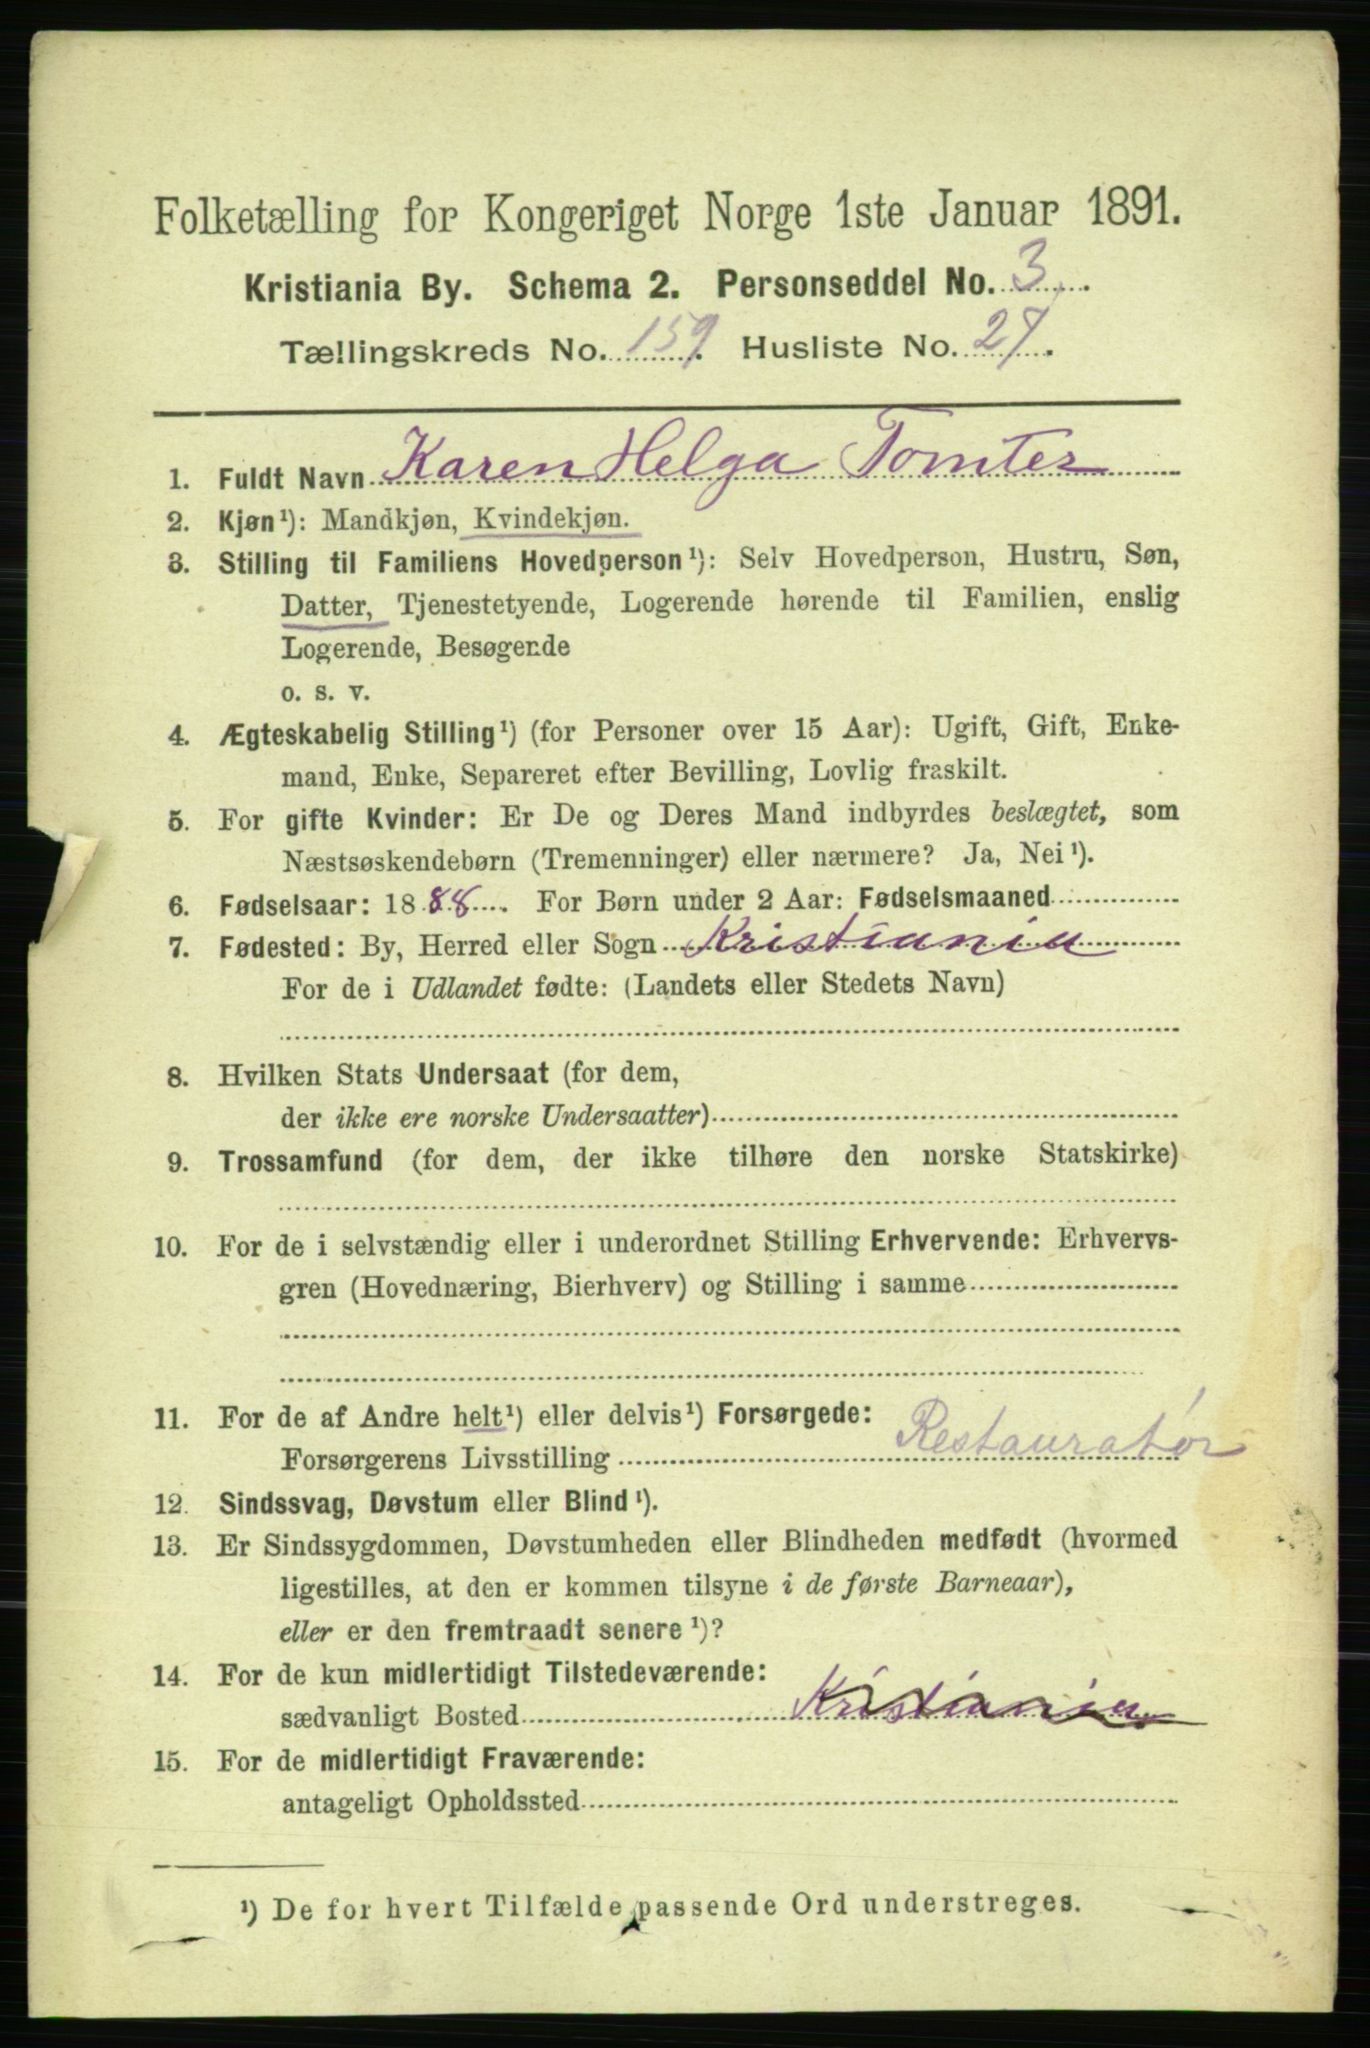 Folketælling for Kongeriget Norge 1ste Januar 1891.
Kristiania By. Schema 2. Personseddel No. 3.
Tællingskreds No. 159. Husliste No. 27.
1. Fuldt Navn Karen Helga Tomter
2. Kjøn¹): Mandkjøn, Kvindekjøn.
3. Stilling til Familiens Hovedperson¹): Selv Hovedperson, Hustru, Søn,
Datter, Tjenestetyende, Logerende hørende til Familien, enslig
Logerende, Besøgende
o. s. v.
4. Ægteskabelig Stilling¹) (for Personer over 15 Aar): Ugift, Gift, Enke-
mand, Enke, Separeret efter Bevilling, Lovlig fraskilt.
5. For gifte Kvinder: Er De og Deres Mand indbyrdes beslægtet, som
Næstsøskendebørn (Tremenninger) eller nærmere? Ja, Nei¹).
6. Fødselsaar: 1888. For Børn under 2 Aar: Fødselsmaaned
7. Fødested: By, Herred eller Sogn Kristiania
For de i Udlandet fødte: (Landets eller Stedets Navn)
8. Hvilken Stats Undersaat (for dem,
der ikke ere norske Undersaatter)
9. Trossamfund (for dem, der ikke tilhøre den norske Statskirke)
10. For de i selvstændig eller i underordnet Stilling Erhvervende: Erhvervs-
gren (Hovednæring, Bierhverv) og Stilling i samme
11. For de af Andre helt¹) eller delvis¹) Forsørgede:
Forsørgerens Livsstilling Restauratør
12. Sindssvag, Døvstum eller Blind¹).
13. Er Sindssygdommen, Døvstumheden eller Blindheden medfødt (hvormed
ligestilles, at den er kommen tilsyne i de første Barneaar),
eller er den fremtraadt senere¹)?
14. For de kun midlertidigt Tilstedeværende:
sædvanligt Bosted Kristiania
15. For de midlertidigt Fraværende:
antageligt Opholdssted
¹) De for hvert Tilfælde passende Ord understreges.